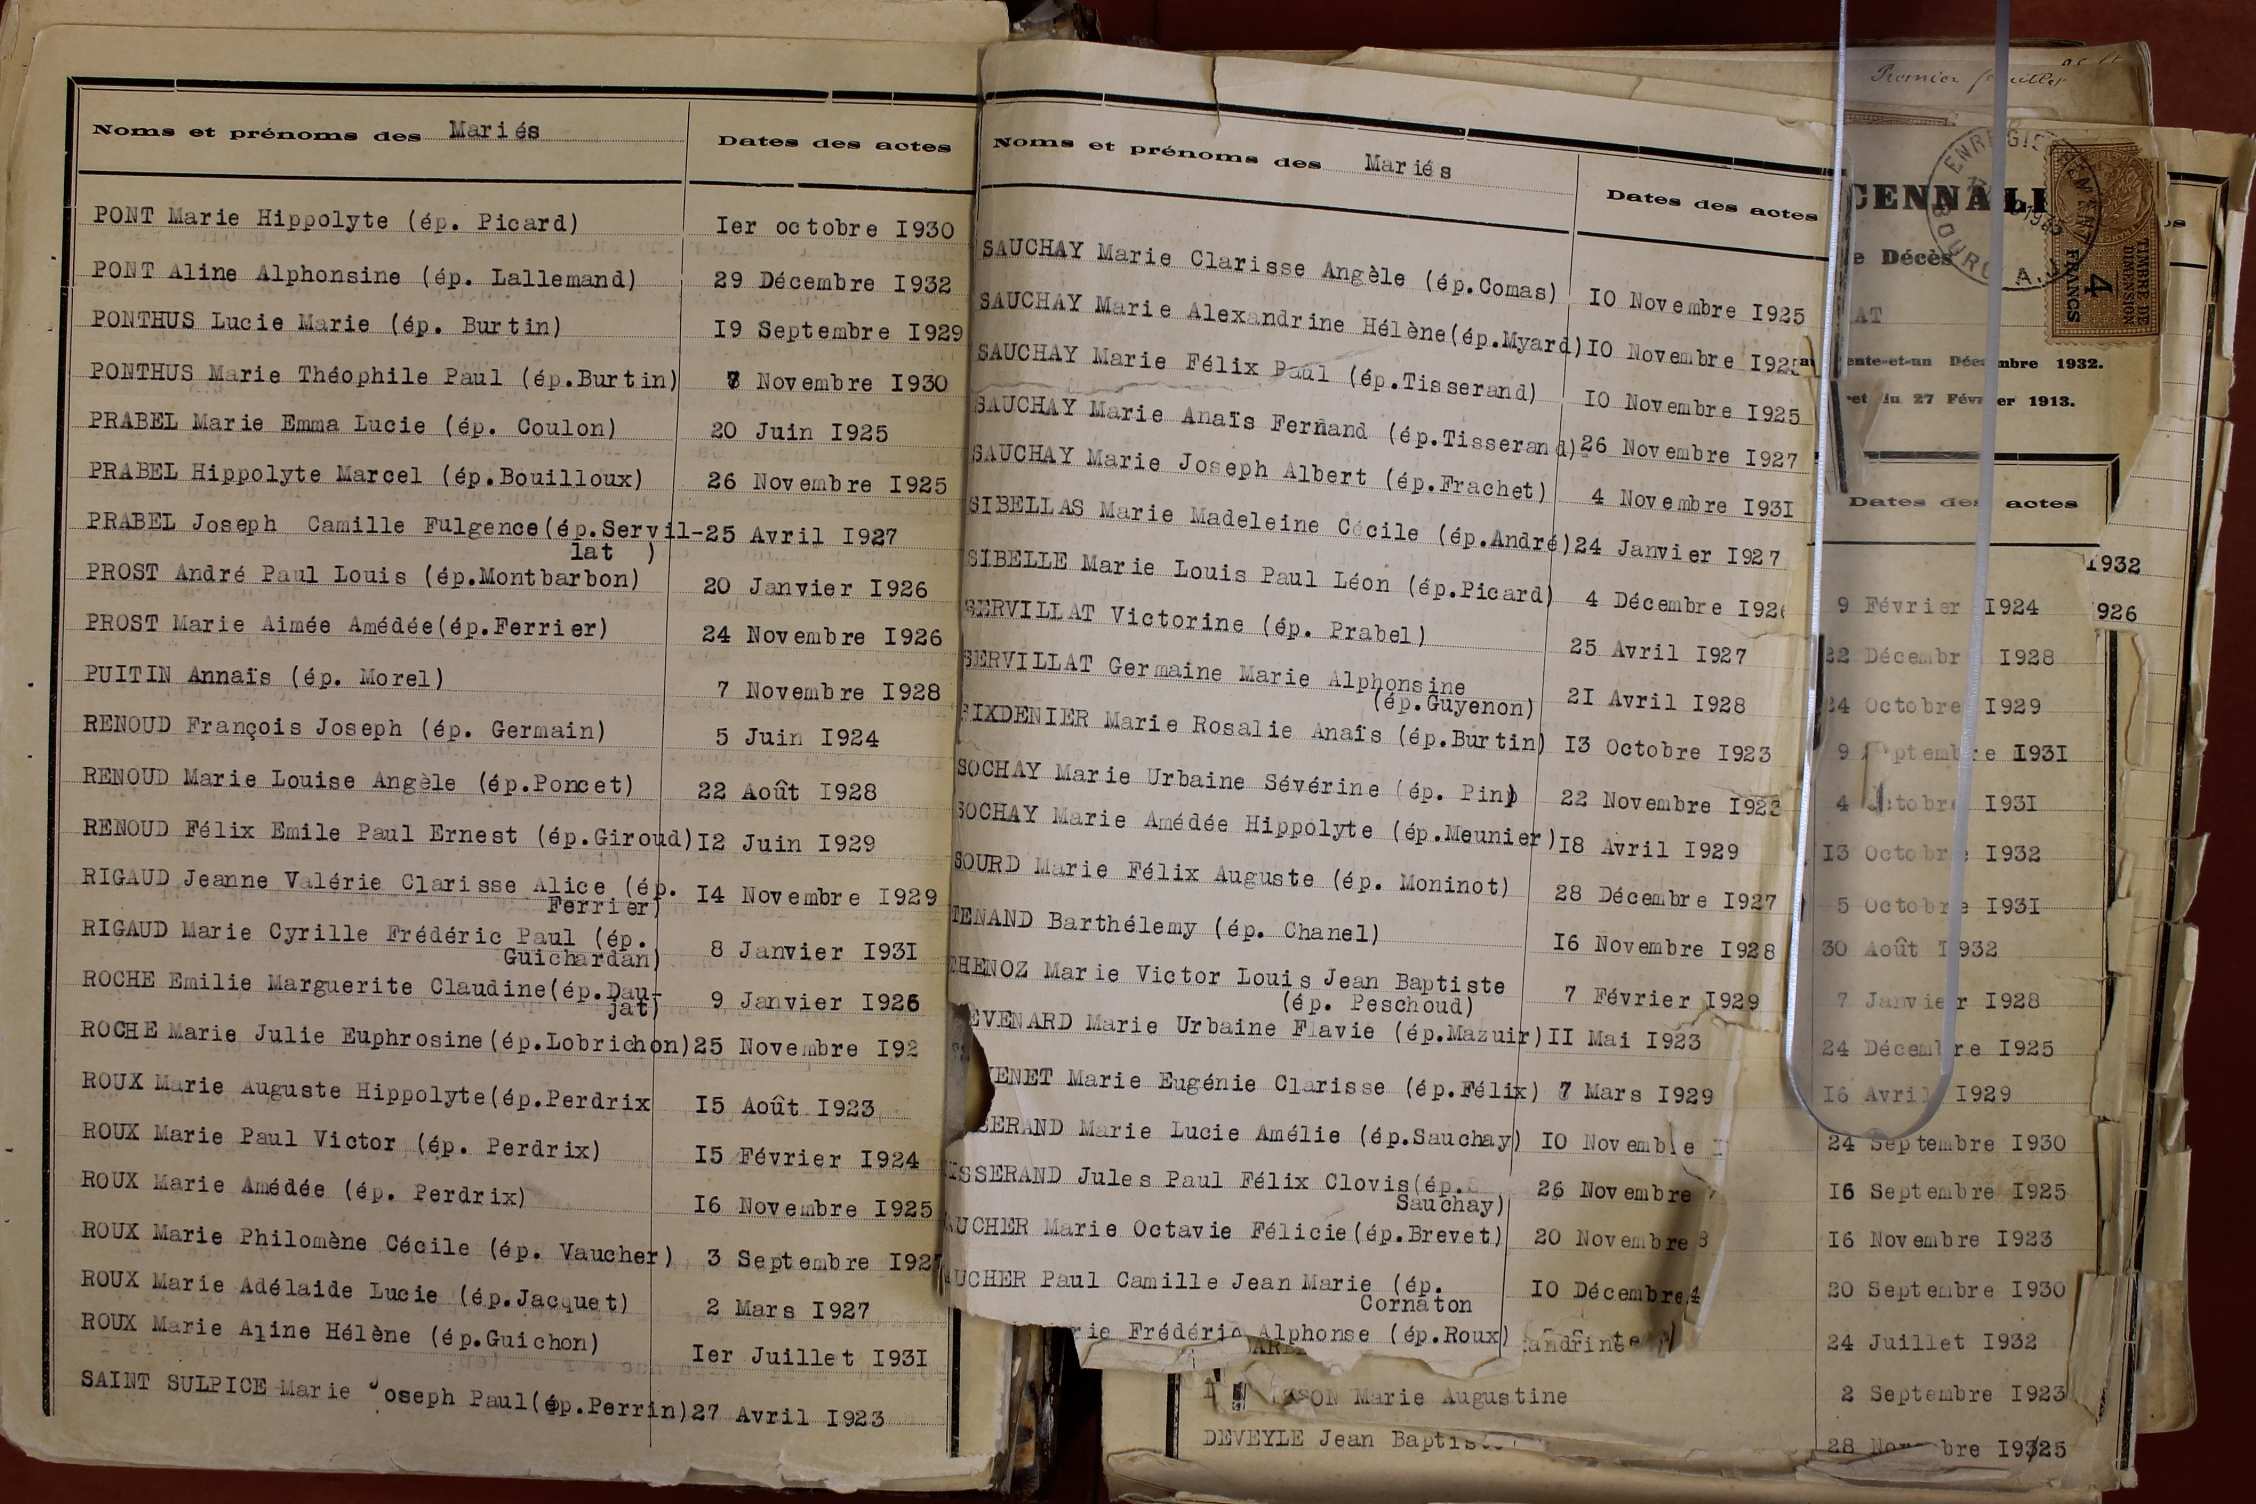 Noms et prénoms des Mariés
Dates des actes
PONT Marie Hippolyte (ép. Picard) Ier octobre I930
PONT Aline Alphonsine (ép. Lallemand) 29 Décembre I932
PONTHUS Lucie Marie (ép. Burtin) I9 Septembre I929
PONTHUS Marie Théophile Paul (ép.Burtin) Novembre I930
PRABEL Marie Emma Lucie (ép. Coulon) 20 Juin I925
PRABEL Hippolyte Marcel (ép.Bouilloux) 26 Novembre I925
PRABEL Joseph Camille Fulgence(ép.Servil- 25 Avril I927
lat )
PROST André Paul Louis (ép.Montbarbon) 20 Janvier I926
PROST Marie Aimée Amédée(ép.Ferrier) 24 Novembre I926
PUITIN Annaïs (ép. Morel) 7 Novembre I928
RENOUD François Joseph (ép. Germain) 5 Juin I924
RENOUD Marie Louise Angèle (ép.Poncet) 22 Août I928
RENOUD Félix Emile Paul Ernest (ép.Giroud) I2 Juin I929
RIGAUD Jeanne Valérie Clarisse Alice (ép. I4 Novembre I929
Ferrier)
RIGAUD Marie Cyrille Frédéric Paul (ép. 8 Janvier I93I
Guichardan)
ROCHE Emilie Marguerite Claudine(ép.Dau- 9 Janvier I926
jat)
ROCHE Marie Julie Euphrosine(ép.Lobrichon) 25 Novembre I92
ROUX Marie Auguste Hippolyte(ép.Perdrix I5 Août I923
ROUX Marie Paul Victor (ép. Perdrix) I5 Février I924
ROUX Marie Amédée (ép. Perdrix) I6 Novembre I925
ROUX Marie Philomène Cécile (ép. Vaucher) 3 Septembre I927
ROUX Marie Adélaide Lucie (ép.Jacquet) 2 Mars I927
ROUX Marie Aline Hélène (ép.Guichon) Ier Juillet I93I
SAINT SULPICE Marie Joseph Paul(ép.Perrin) 27 Avril I923
Noms et prénoms des Mariés
Dates des actes
SAUCHAY Marie Clarisse Angèle (ép.Comas) IO Novembre I925
SAUCHAY Marie Alexandrine Hélène(ép.Myard) IO Novembre I925
SAUCHAY Marie Félix Paul (ép.Tisserand) IO Novembre I925
SAUCHAY Marie Anaïs Fernand (ép.Tisserand) 26 Novembre I927
SAUCHAY Marie Joseph Albert (ép.Frachet) 4 Novembre I93I
SIBELLAS Marie Madeleine Cécile (ép.André) 24 Janvier I927
SIBELLE Marie Louis Paul Léon (ép.Picard) 4 Décembre I926
SERVILLAT Victorine (ép. Prabel) 25 Avril I927
SERVILLAT Germaine Marie Alphonsine 2I Avril I928
(ép.Guyenon)
SIXDENIER Marie Rosalie Anaïs (ép.Burtin) I3 Octobre I923
SOCHAY Marie Urbaine Sévérine (ép. Pin) 22 Novembre I923
SOCHAY Marie Amédée Hippolyte (ép.Meunier) I8 Avril I929
SOURD Marie Félix Auguste (ép. Moninot) 28 Décembre I927
TENAND Barthélemy (ép. Chanel) I6 Novembre I928
THENOZ Marie Victor Louis Jean Baptiste 7 Février I929
(ép. Peschoud)
EVENARD Marie Urbaine Flavie (ép.Mazuir) II Mai I923
ENET Marie Eugénie Clarisse (ép.Félix) 7 Mars I929
SERAND Marie Lucie Amélie (ép.Sauchay) IO Novembre I
ISSERAND Jules Paul Félix Clovis(ép. 26 Novembre
Sauchay)
AUCHER Marie Octavie Félicie(ép.Brevet) 20 Novembre 3
UCHER Paul Camille Jean Marie (ép. IO Décembre 4
Cornaton
rie Frédéric Alphonse (ép.Roux)
andrine
ON Marie Augustine
DEVEYLE Jean Baptiste
Premier feuillet
ENREGISTREMENT
BOURG
CENNAL
TIMBRE DE DIMENSION
4 FRANCS
e Décès
AT
ente-et-un Décembre 1932.
et du 27 Février 1913.
Dates des actes
I932
926
9 Février I924
22 Décembre I928
24 Octobre I929
9 Septembre I93I
4 Octobre I93I
I3 Octobre I932
5 Octobre I93I
30 Août I932
7 Janvier I928
24 Décembre I925
I6 Avril I929
24 Septembre I930
I6 Septembre I925
I6 Novembre I923
20 Septembre I930
24 Juillet I932
2 Septembre I923
28 Novembre